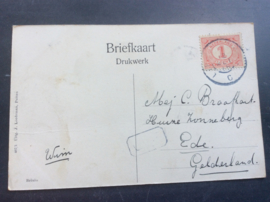 Briefkaart
Drukwerk
1
Mej C. Braafhart.
Huize Zonneberg
Ede.
Gelderland.
Wim